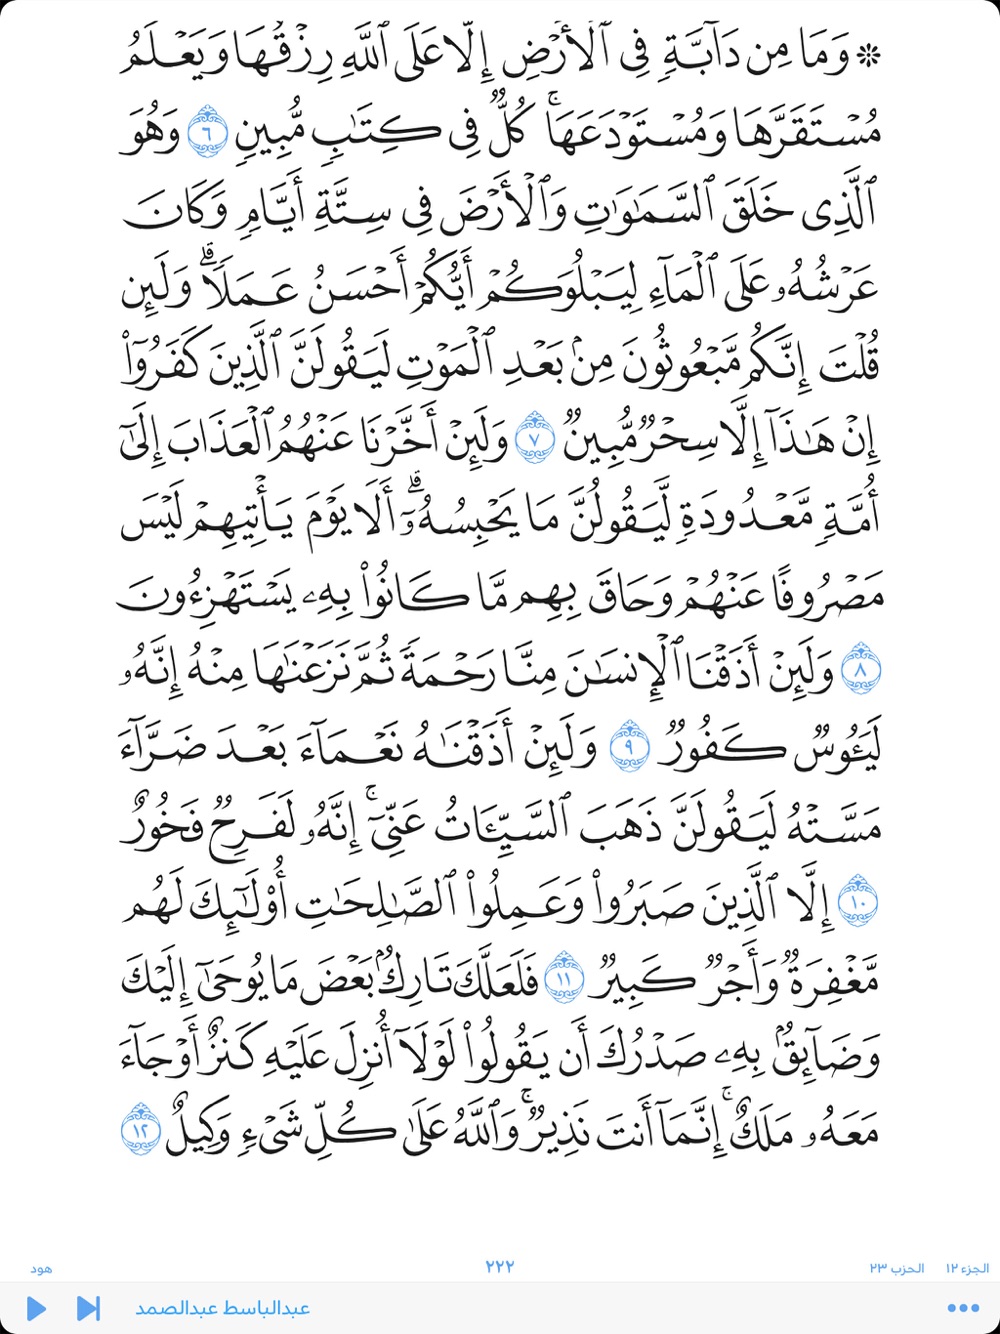 ۞ وَمَا مِن دَآبَّةٖ فِي ٱلۡأَرۡضِ إِلَّا عَلَى ٱللَّهِ رِزۡقُهَا وَيَعۡلَمُ
مُسۡتَقَرَّهَا وَمُسۡتَوۡدَعَهَاۚ كُلّٞ فِي كِتَٰبٖ مُّبِينٖ ٦ وَهُوَ
ٱلَّذِي خَلَقَ ٱلسَّمَٰوَٰتِ وَٱلۡأَرۡضَ فِي سِتَّةِ أَيَّامٖ وَكَانَ
عَرۡشُهُۥ عَلَى ٱلۡمَآءِ لِيَبۡلُوَكُمۡ أَيُّكُمۡ أَحۡسَنُ عَمَلٗاۗ وَلَئِن
قُلۡتَ إِنَّكُم مَّبۡعُوثُونَ مِنۢ بَعۡدِ ٱلۡمَوۡتِ لَيَقُولَنَّ ٱلَّذِينَ كَفَرُوٓاْ
إِنۡ هَٰذَآ إِلَّا سِحۡرٞ مُّبِينٞ ٧ وَلَئِنۡ أَخَّرۡنَا عَنۡهُمُ ٱلۡعَذَابَ إِلَىٰٓ
أُمَّةٖ مَّعۡدُودَةٖ لَّيَقُولُنَّ مَا يَحۡبِسُهُۥٓۗ أَلَا يَوۡمَ يَأۡتِيهِمۡ لَيۡسَ
مَصۡرُوفًا عَنۡهُمۡ وَحَاقَ بِهِم مَّا كَانُواْ بِهِۦ يَسۡتَهۡزِءُونَ
٨ وَلَئِنۡ أَذَقۡنَا ٱلۡإِنسَٰنَ مِنَّا رَحۡمَةٗ ثُمَّ نَزَعۡنَٰهَا مِنۡهُ إِنَّهُۥ
لَيَـُٔوسٞ كَفُورٞ ٩ وَلَئِنۡ أَذَقۡنَٰهُ نَعۡمَآءَ بَعۡدَ ضَرَّآءَ
مَسَّتۡهُ لَيَقُولَنَّ ذَهَبَ ٱلسَّيِّـَٔاتُ عَنِّيٓۚ إِنَّهُۥ لَفَرِحٞ فَخُورٌ
١٠ إِلَّا ٱلَّذِينَ صَبَرُواْ وَعَمِلُواْ ٱلصَّٰلِحَٰتِ أُوْلَٰٓئِكَ لَهُم
مَّغۡفِرَةٞ وَأَجۡرٞ كَبِيرٞ ١١ فَلَعَلَّكَ تَارِكُۢ بَعۡضَ مَا يُوحَىٰٓ إِلَيۡكَ
وَضَآئِقُۢ بِهِۦ صَدۡرُكَ أَن يَقُولُواْ لَوۡلَآ أُنزِلَ عَلَيۡهِ كَنزٌ أَوۡ جَآءَ
مَعَهُۥ مَلَكٌۚ إِنَّمَآ أَنتَ نَذِيرٞۚ وَٱللَّهُ عَلَىٰ كُلِّ شَيۡءٖ وَكِيلٌ ١٢
الجزء ١٢ الحزب ٢٣ ٢٢٢ هود
عبدالباسط عبدالصمد